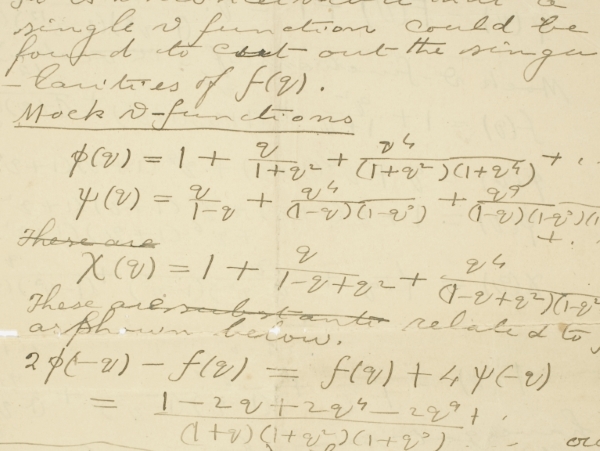 single ϑ function could be
found to cut out the singu
-larities of f(q).
Mock ϑ-functions
φ(q) = 1 + q/(1+q²) + q⁴/((1+q²)(1+q⁴)) + ·
ψ(q) = q/(1-q) + q⁴/((1-q)(1-q³)) + q⁹/((1-q)(1-q³)(1
+ ·
These are
χ(q) = 1 + q/(1-q+q²) + q⁴/((1-q+q²)(1-q²
These are related to
as shown below.
2φ(-q) - f(q) = f(q) + 4ψ(-q)
= (1 - 2q + 2q⁴ - 2q⁹ + ·)/((1+q)(1+q²)(1+q³) ...